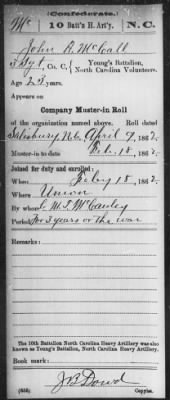 (Confederate.)
Mc 10 Batt'n H. Art'y. N.C.
John R. McCall
3 Sgt, Co. C, Young's Battalion, North Carolina Volunteers.
Age 23 years.
Appears on
Company Muster-in Roll
of the organization named above. Roll dated
Salisbury, N.C. April 9, 1862.
Muster-in to date Feb. 18, 1862.
Joined for duty and enrolled:
When Feb'y 18, 1862.
Where Union
By whom C. M. T. McCauley
Period for 3 years or the war
Remarks:
The 10th Battalion North Carolina Heavy Artillery was also known
as Young's Battalion, North Carolina Heavy Artillery.
Book mark:
J B Dowd
Copyist.